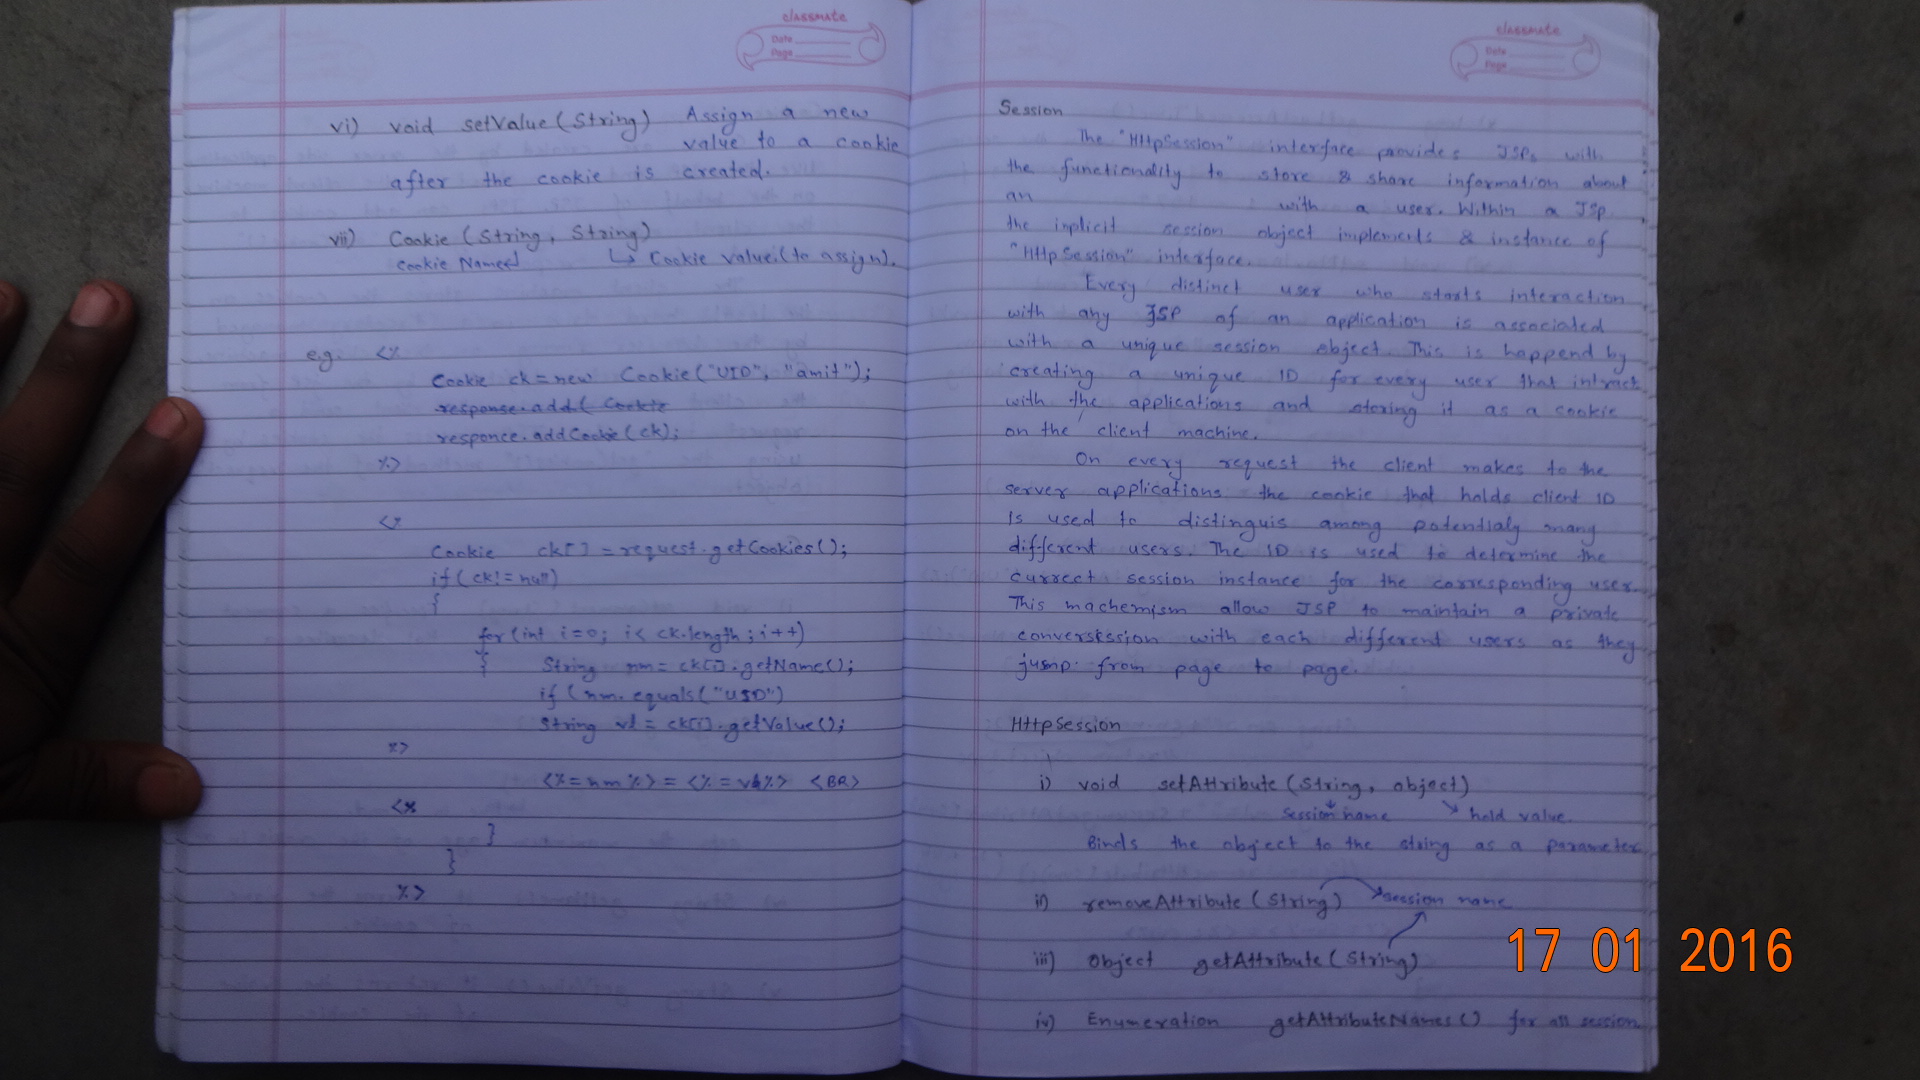 classmate
Date
Page
vi) void setValue(String) Assign a new
value to a cookie
after the cookie is created.
vii) Cookie (String, String)
cookie Name ↳ Cookie value.(to assign).
e.g. <%
Cookie ck = new Cookie("UID", "amit");
response.add( Cookie
responce.addCookie(ck);
%>
<%
Cookie ck[] = request.getCookies();
if(ck!=null)
{
for(int i=0; i< ck.length; i++)
{ String nm= ck[i].getName();
if (nm.equals("UID")
String vl = ck[i].getValue();
%>
<%=nm%> = <%=vl%> <BR>
<%
}
}
%>
classmate
Date
Page
Session
The "HttpSession" interface provides JSPs with
the functionality to store & share information about
an with a user. Within a JSP
the inplicit session object implements & instance of
"HttpSession" interface.
Every distinct user who starts interaction
with any JSP of an application is associated
with a unique session object. This is happend by
creating a unique ID for every user that intract
with the applications and storing it as a cookie
on the client machine.
On every request the client makes to the
server applications the cookie that holds client ID
is used to distinguis among potentialy many
different users. The ID is used to determine the
currect session instance for the corresponding user.
This machemism allow JSP to maintain a private
conversession with each different users as they
jump from page to page.
HttpSession
i) void setAttribute (String, object)
session name ↘ hold value.
Binds the object to the string as a parameter
ii) removeAttribute (String) session name
iii) Object getAttribute (String)
iv) Enumeration getAttributeNames() for all session
17 01 2016